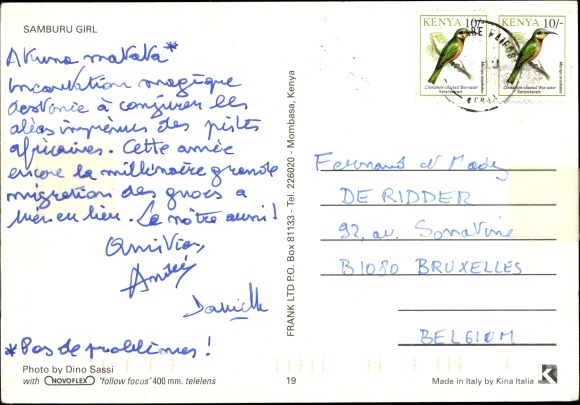 SAMBURU GIRL
Akuna matata*
Incantation magique
destinée à conjurer les
aléas imprévus des pistes
africaines. Cette année
encore la millénaire grande
migration des gnous a
bien eu lieu. La nôtre aussi!
Amitiés,
André
Danielle
*Pas de problèmes!
Photo by Dino Sassi
with NOVOFLEX "follow focus" 400 mm. telelens
FRANK LTD P.O. Box 81133 - Tel. 226020 - Mombasa, Kenya
19
KENYA 10/-
Cinnamon-chested Bee-eater
Merops oreobates
KENYA 10/-
Cinnamon-chested Bee-eater
Merops oreobates
Fernand et Mady
DE RIDDER
92, av.
B1080 BRUXELLES
BELGIUM
Made in Italy by Kina Italia
K